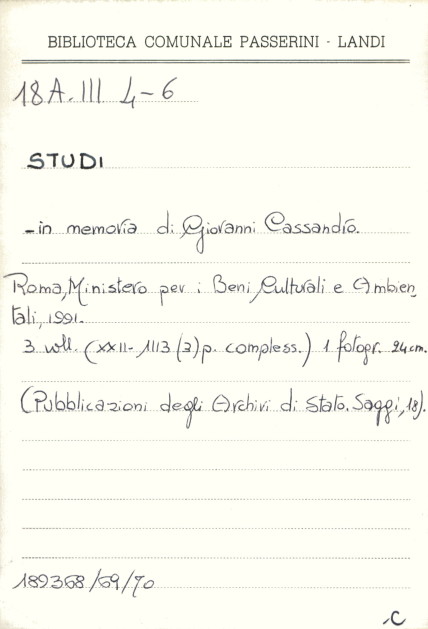 BIBLIOTECA COMUNALE PASSERINI - LANDI
18A.III 4-6
STUDI
- in memoria di Giovanni Cassandro.
Roma, Ministero per i Beni Culturali e Ambien
tali, 1991.
3 voll. (XXII- 1113 (3) p. compless.) 1 fotogr. 24 cm.
(Pubblicazioni degli Archivi di Stato. Saggi, 18).
189368/69/70
C